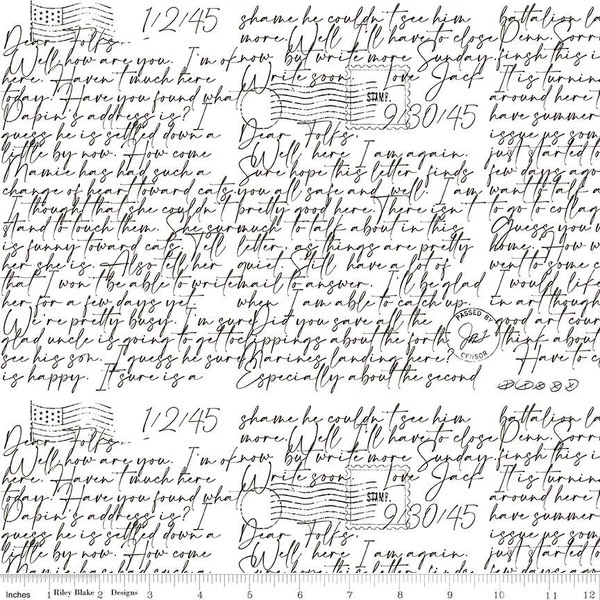 1/2/45
Dear Folks,
Well, how are you. I'm ok
here. Haven't much here
today. Have you found wha
Papin's address is? I
guess he is settled down a
little by now. How come
Mamie has had such a
change of heart toward cats.
I thought that she couldn't
stand to touch them. She sur
is funny toward cats. Tell
her she is. Also tell her
that I won't be able to write
her for a few days yet.
We're pretty busy. I'm sure
glad uncle is going to get to
see his son. I guess he sure
is happy. It sure is a
shame he couldn't see him
more. Well I'll have to close
now but write more Sunday.
Write soon. Love Jack
STAMP
9/30/45
Dear Folks,
Well, here I am again.
Sure hope this letter finds
you all safe and well. I am
pretty good here. There isn't
much to talk about in this
letter, as things are pretty
quiet. Still have a lot of
mail to answer. I'll be glad
when I am able to catch up.
Did you save all the
clippings about the forth
Marines landing here?
Especially about the second
battalion la
Penn. Sorr
finish this i
It is turnin
around here t
have summer
issue us som
just started to
few days ago
want to talk a
to go to colleg
Guess you w
home. How w
went to some c
I would like
in art though
good art cour
think about
Have to c
PASSED BY
CENSOR
1/2/45
Dear Folks,
Well, how are you. I'm ok
here. Haven't much here
today. Have you found wha
Papin's address is? I
guess he is settled down a
little by now. How come
Mamie has had such a
shame he couldn't see him
more. Well I'll have to close
now but write more Sunday.
Write soon. Love Jack
STAMP
9/30/45
Dear Folks,
Well, here I am again.
Sure hope this letter finds
battalion la
Penn. Sorr
finish this i
It is turnin
around here t
have summer
issue us som
just started to
few days ago
Inches 1 Riley Blake 2 Designs 3 4 5 6 7 8 9 10 11 12